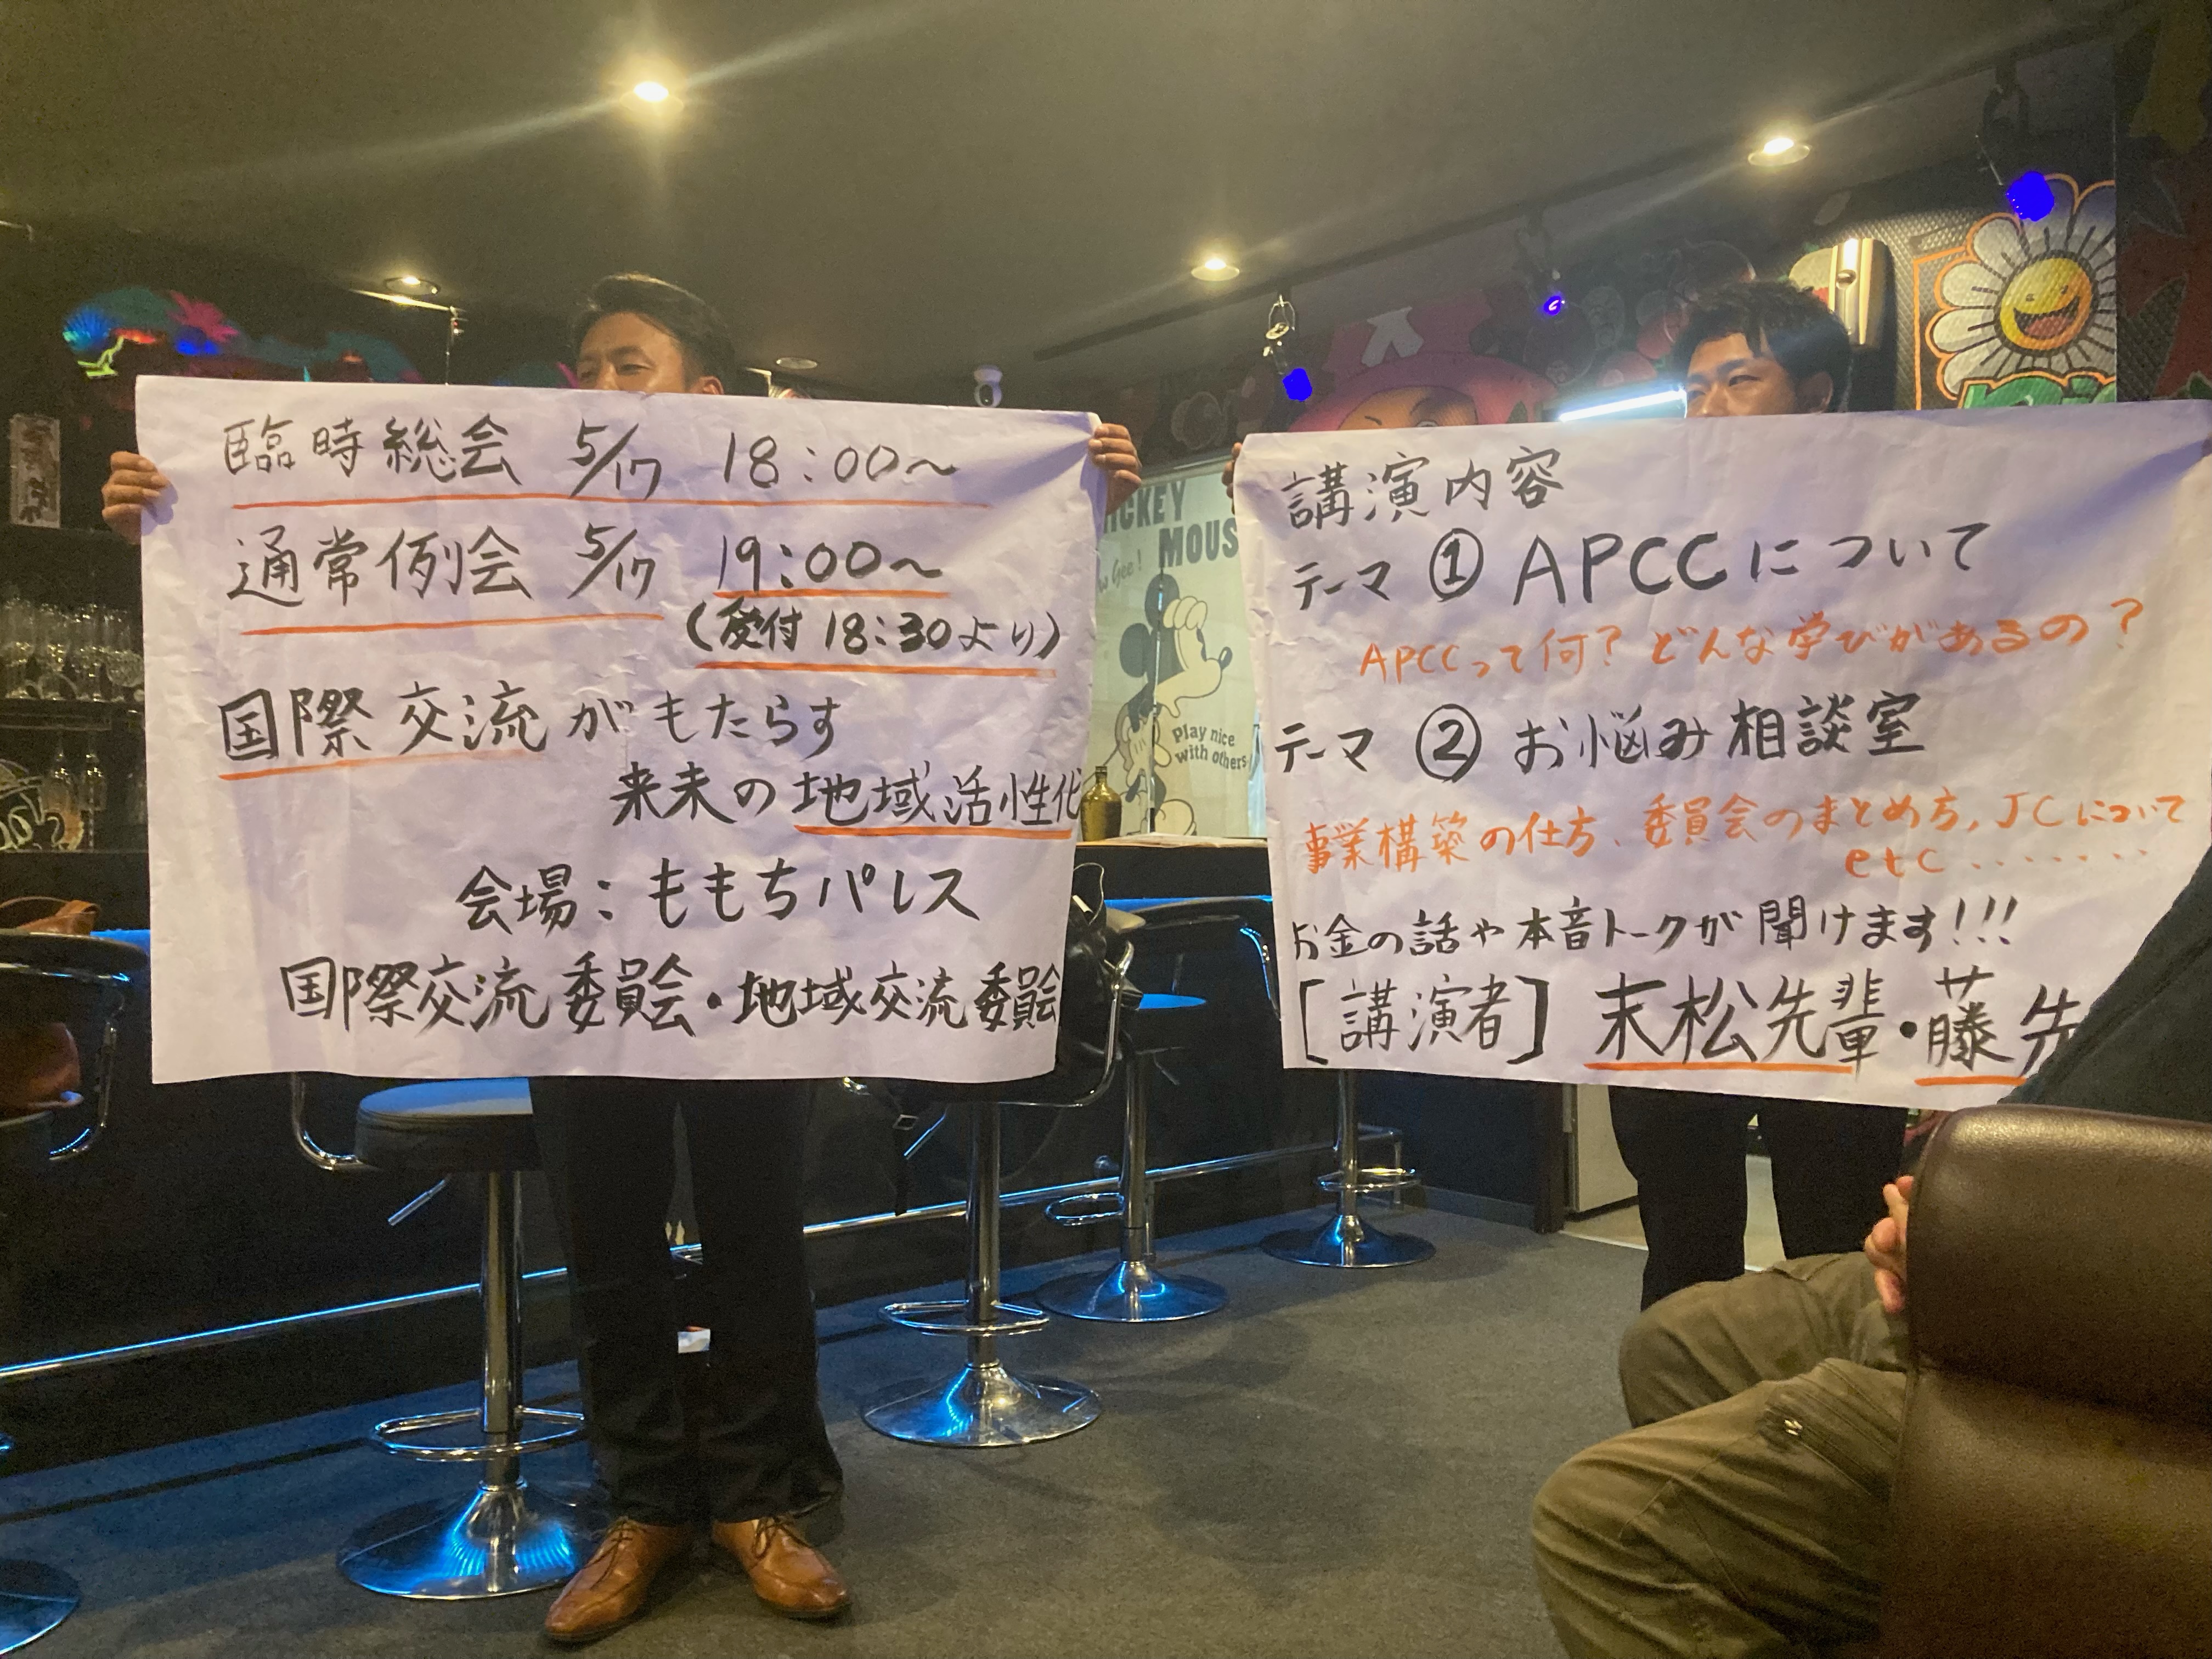 臨時総会 5/17 18:00〜
通常例会 5/17 19:00〜
(受付 18:30より)
国際交流がもたらす
来未の地域活性化
会場：ももちパレス
国際交流委員会・地域交流委員会
MICKEY
MOUS
Gee!
Play nice
with others
講演内容
テーマ ① APCCについて
APCCって何？どんな学びがあるの？
テーマ ② お悩み相談室
事業構築の仕方、委員会のまとめ方, JCについて
etc........
お金の話や本音トークが聞けます!!!
[講演者] 末松先輩・藤先